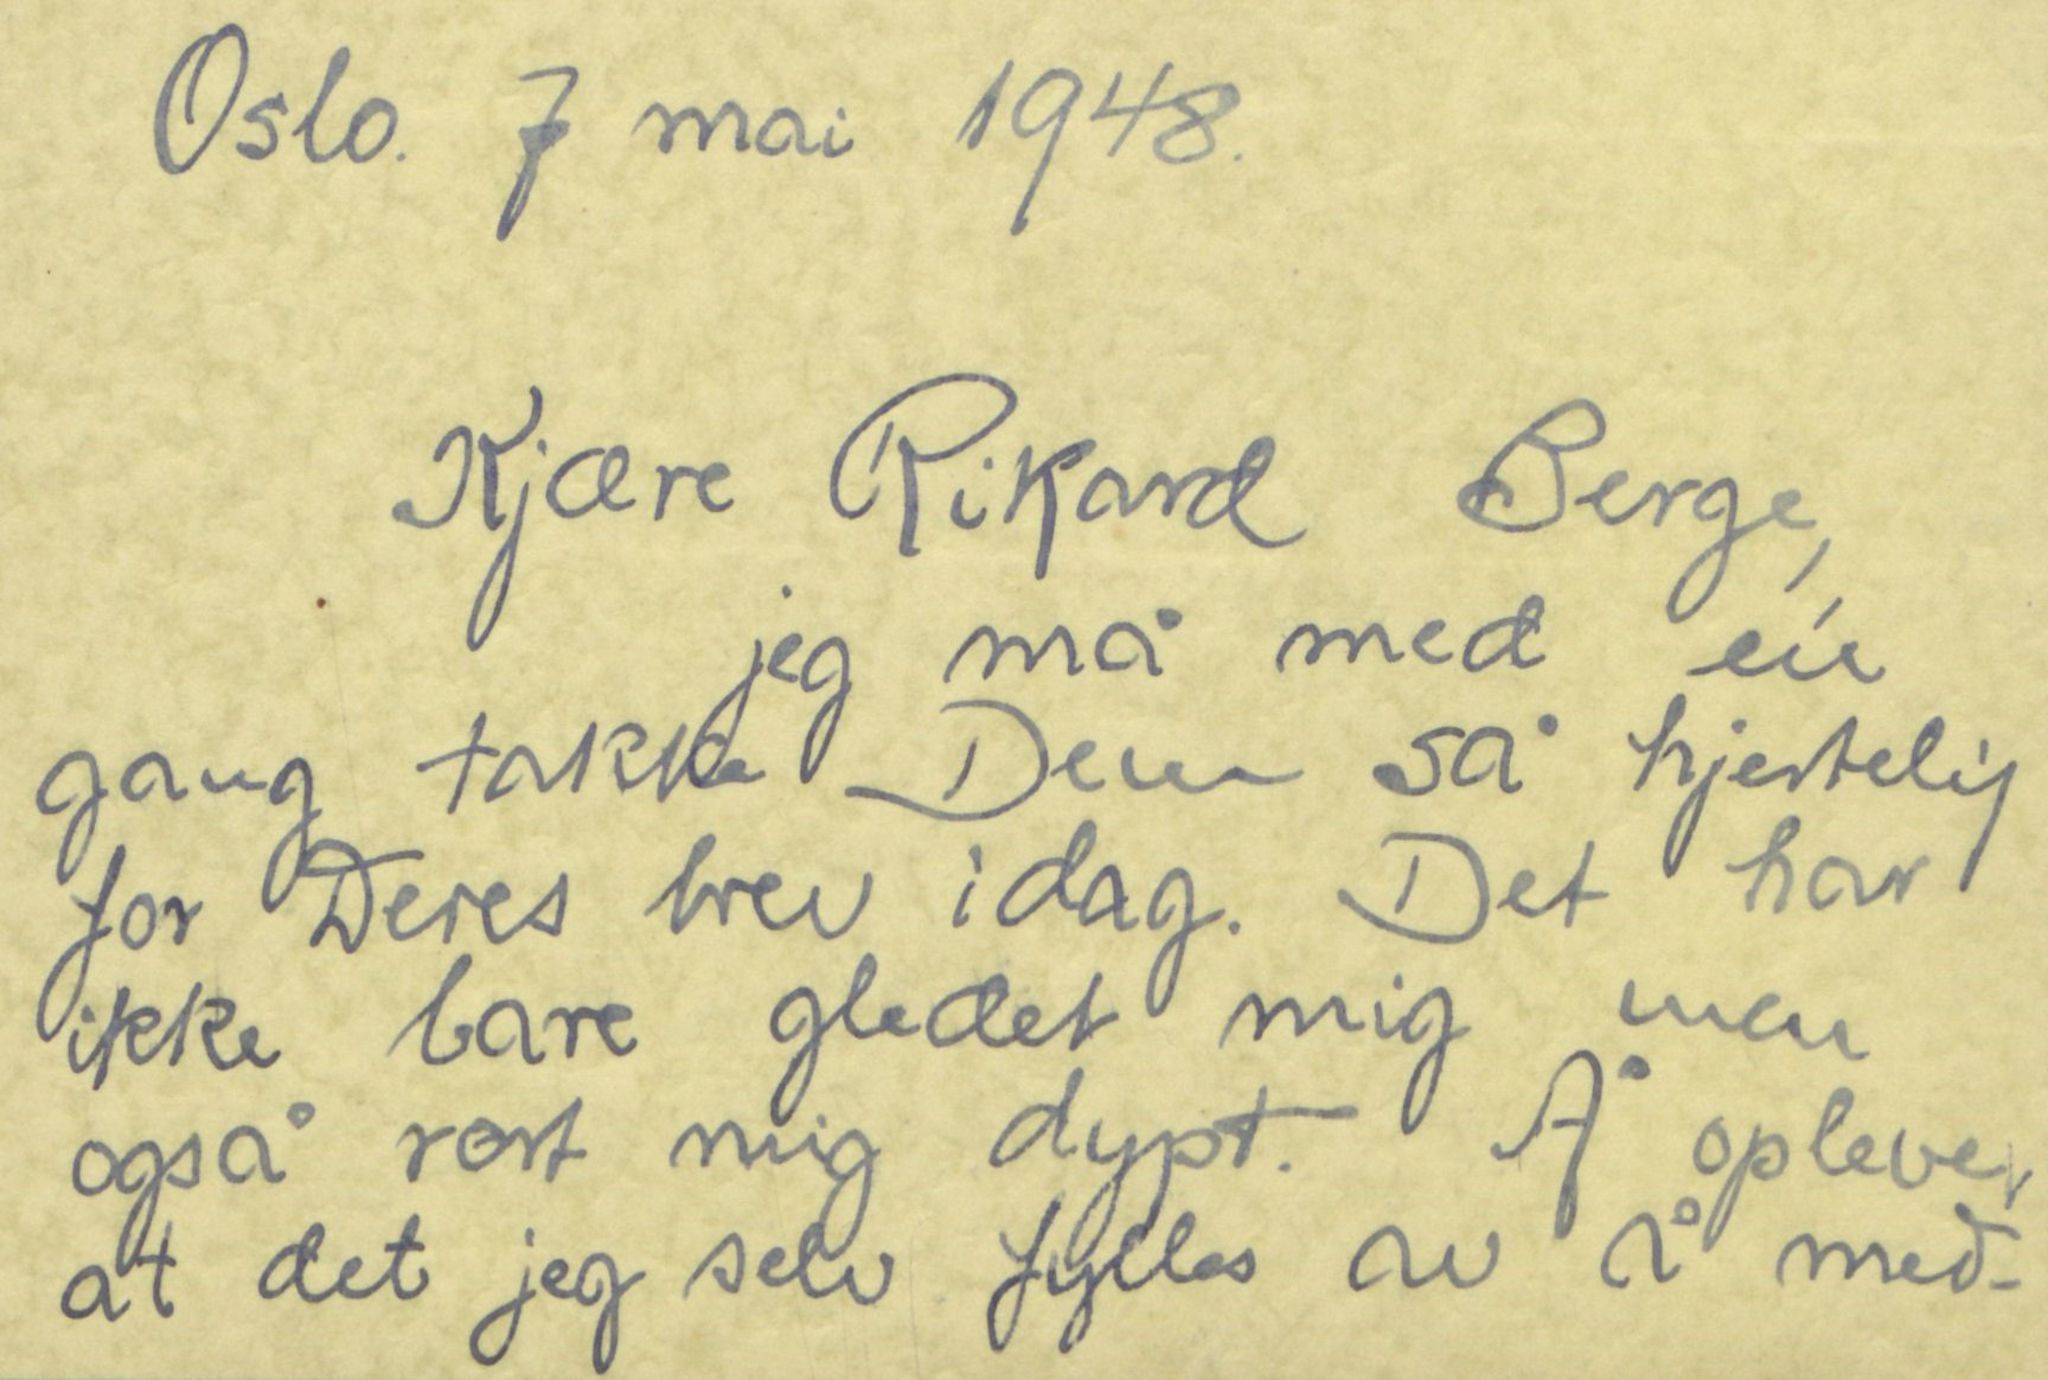 Oslo. 7 mai 1948.
Kjære Rikard Berge,
jeg må med én
gang takke Dem så hjertelig
for Deres brev idag. Det har
ikke bare gledet mig men
også rørt mig dypt. Å opleve,
at det jeg selv fylles av å med-